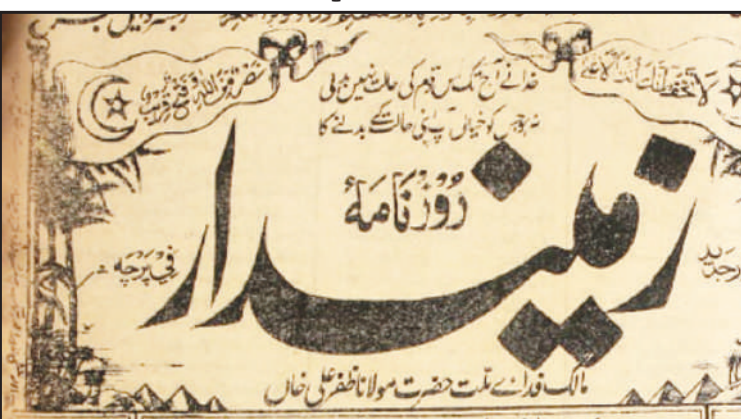 لَا تَخَفْ إِنَّكَ أَنْتَ الْأَعْلَىٰ
نَصْرٌ مِّنَ اللّٰهِ وَفَتْحٌ قَرِيبٌ
خدا نے آج تک اس قوم کی حالت نہیں بدلی
نہ ہو جس کو خیال آپ اپنی حالت کے بدلنے کا
روزنامۂ
زمیندار
فی پرچہ
مالک فدائے ملت حضرت مولانا ظفر علی خاں